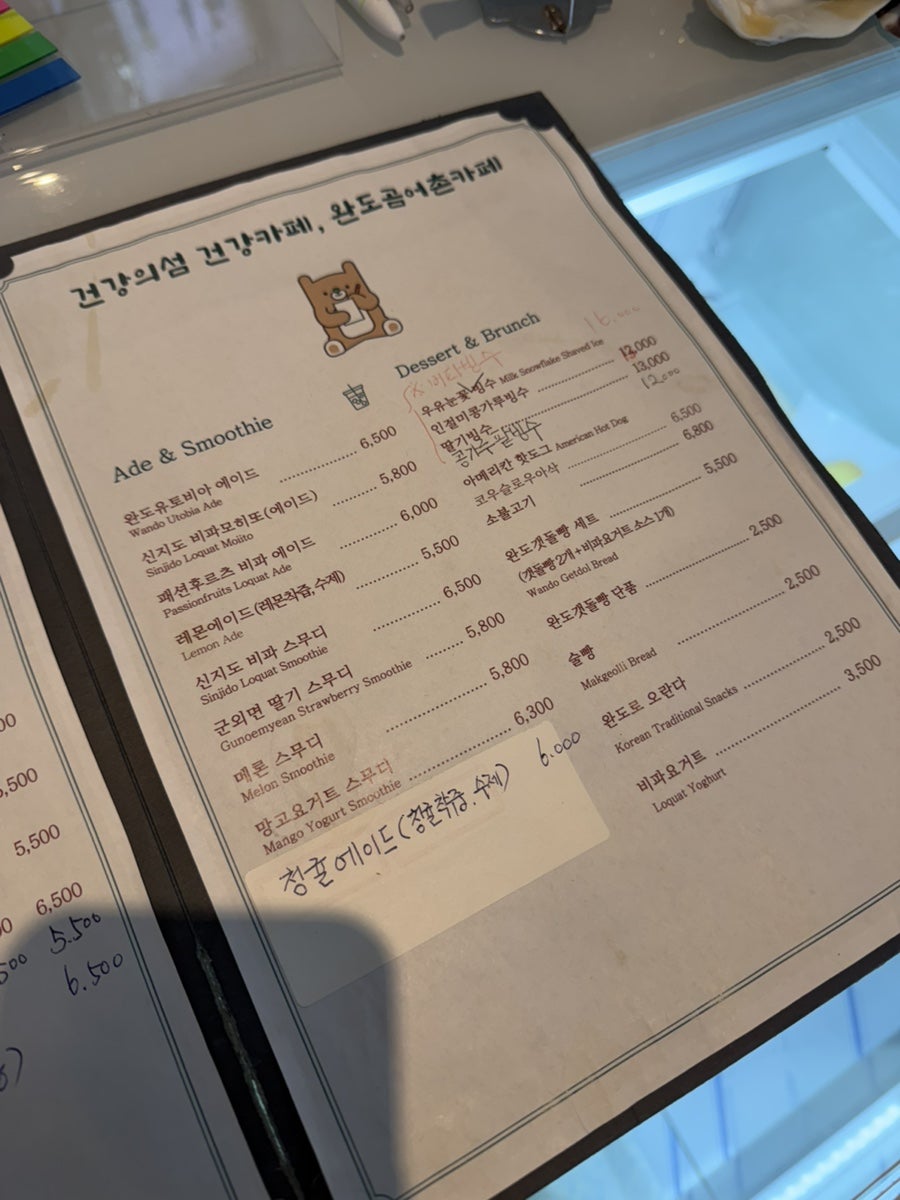 건강의섬 건강카페, 완도곰어촌카페
Ade & Smoothie
완도유토비아 에이드 6,500
Wando Utobia Ade
신지도 비파모히또(에이드) 5,800
Sinjido Loquat Mojito
패션후르츠 비파 에이드 6,000
Passionfruits Loquat Ade
레몬에이드(레몬착즙,수제) 5,500
Lemon Ade
신지도 비파 스무디 6,500
Sinjido Loquat Smoothie
군외면 딸기 스무디 5,800
Gunoemyean Strawberry Smoothie
메론 스무디 5,800
Melon Smoothie
망고요거트 스무디 6,300
Mango Yogurt Smoothie
청귤에이드(청귤착즙.수제) 6.000
Dessert & Brunch
16.000
우유눈꽃빙수 Milk Snowflake Shaved Ice
인절미콩가루빙수 13,000
딸기빙수 13,000
콩가루팥빙수 12.000
아메리칸 핫도그 American Hot Dog
코우슬로우아삭 6,500
소불고기 6,800
완도갯돌빵 세트 5,500
(갯돌빵 2개+비파요거트소스1개)
Wando Getdol Bread
완도갯돌빵 단품 2,500
술빵 2,500
Makgeolli Bread
완도로 오란다 2,500
Korean Traditional Snacks
비파요거트 3,500
Loquat Yoghurt
5,500
6,500
5.500
6.500